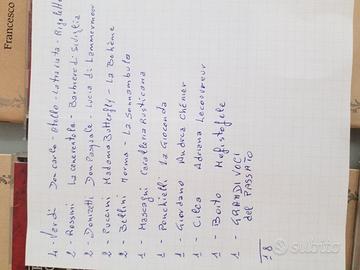 4 - Verdi Don Carlo - Otello - La traviata - Rigoletto
2 - Rossini La cenerentola - Barbiere di Siviglia
2 - Donizetti Don Pasquale - Lucia di Lammermoor
2 - Puccini Madama Butterfly - La Bohème
2 - Bellini Norma - La Sonnambula
1 - Mascagni Cavalleria Rusticana
1 - Ponchielli La Gioconda
1 - Giordano Andrea Chénier
1 - Cilea Adriana Lecouvreur
1 - Boito Mefistofele
1 - GRANDI VOCI
del PASSATO
18
Francesco
Subito.it